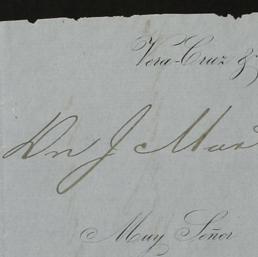 Vera-Cruz &
Dn J
Muy Señor